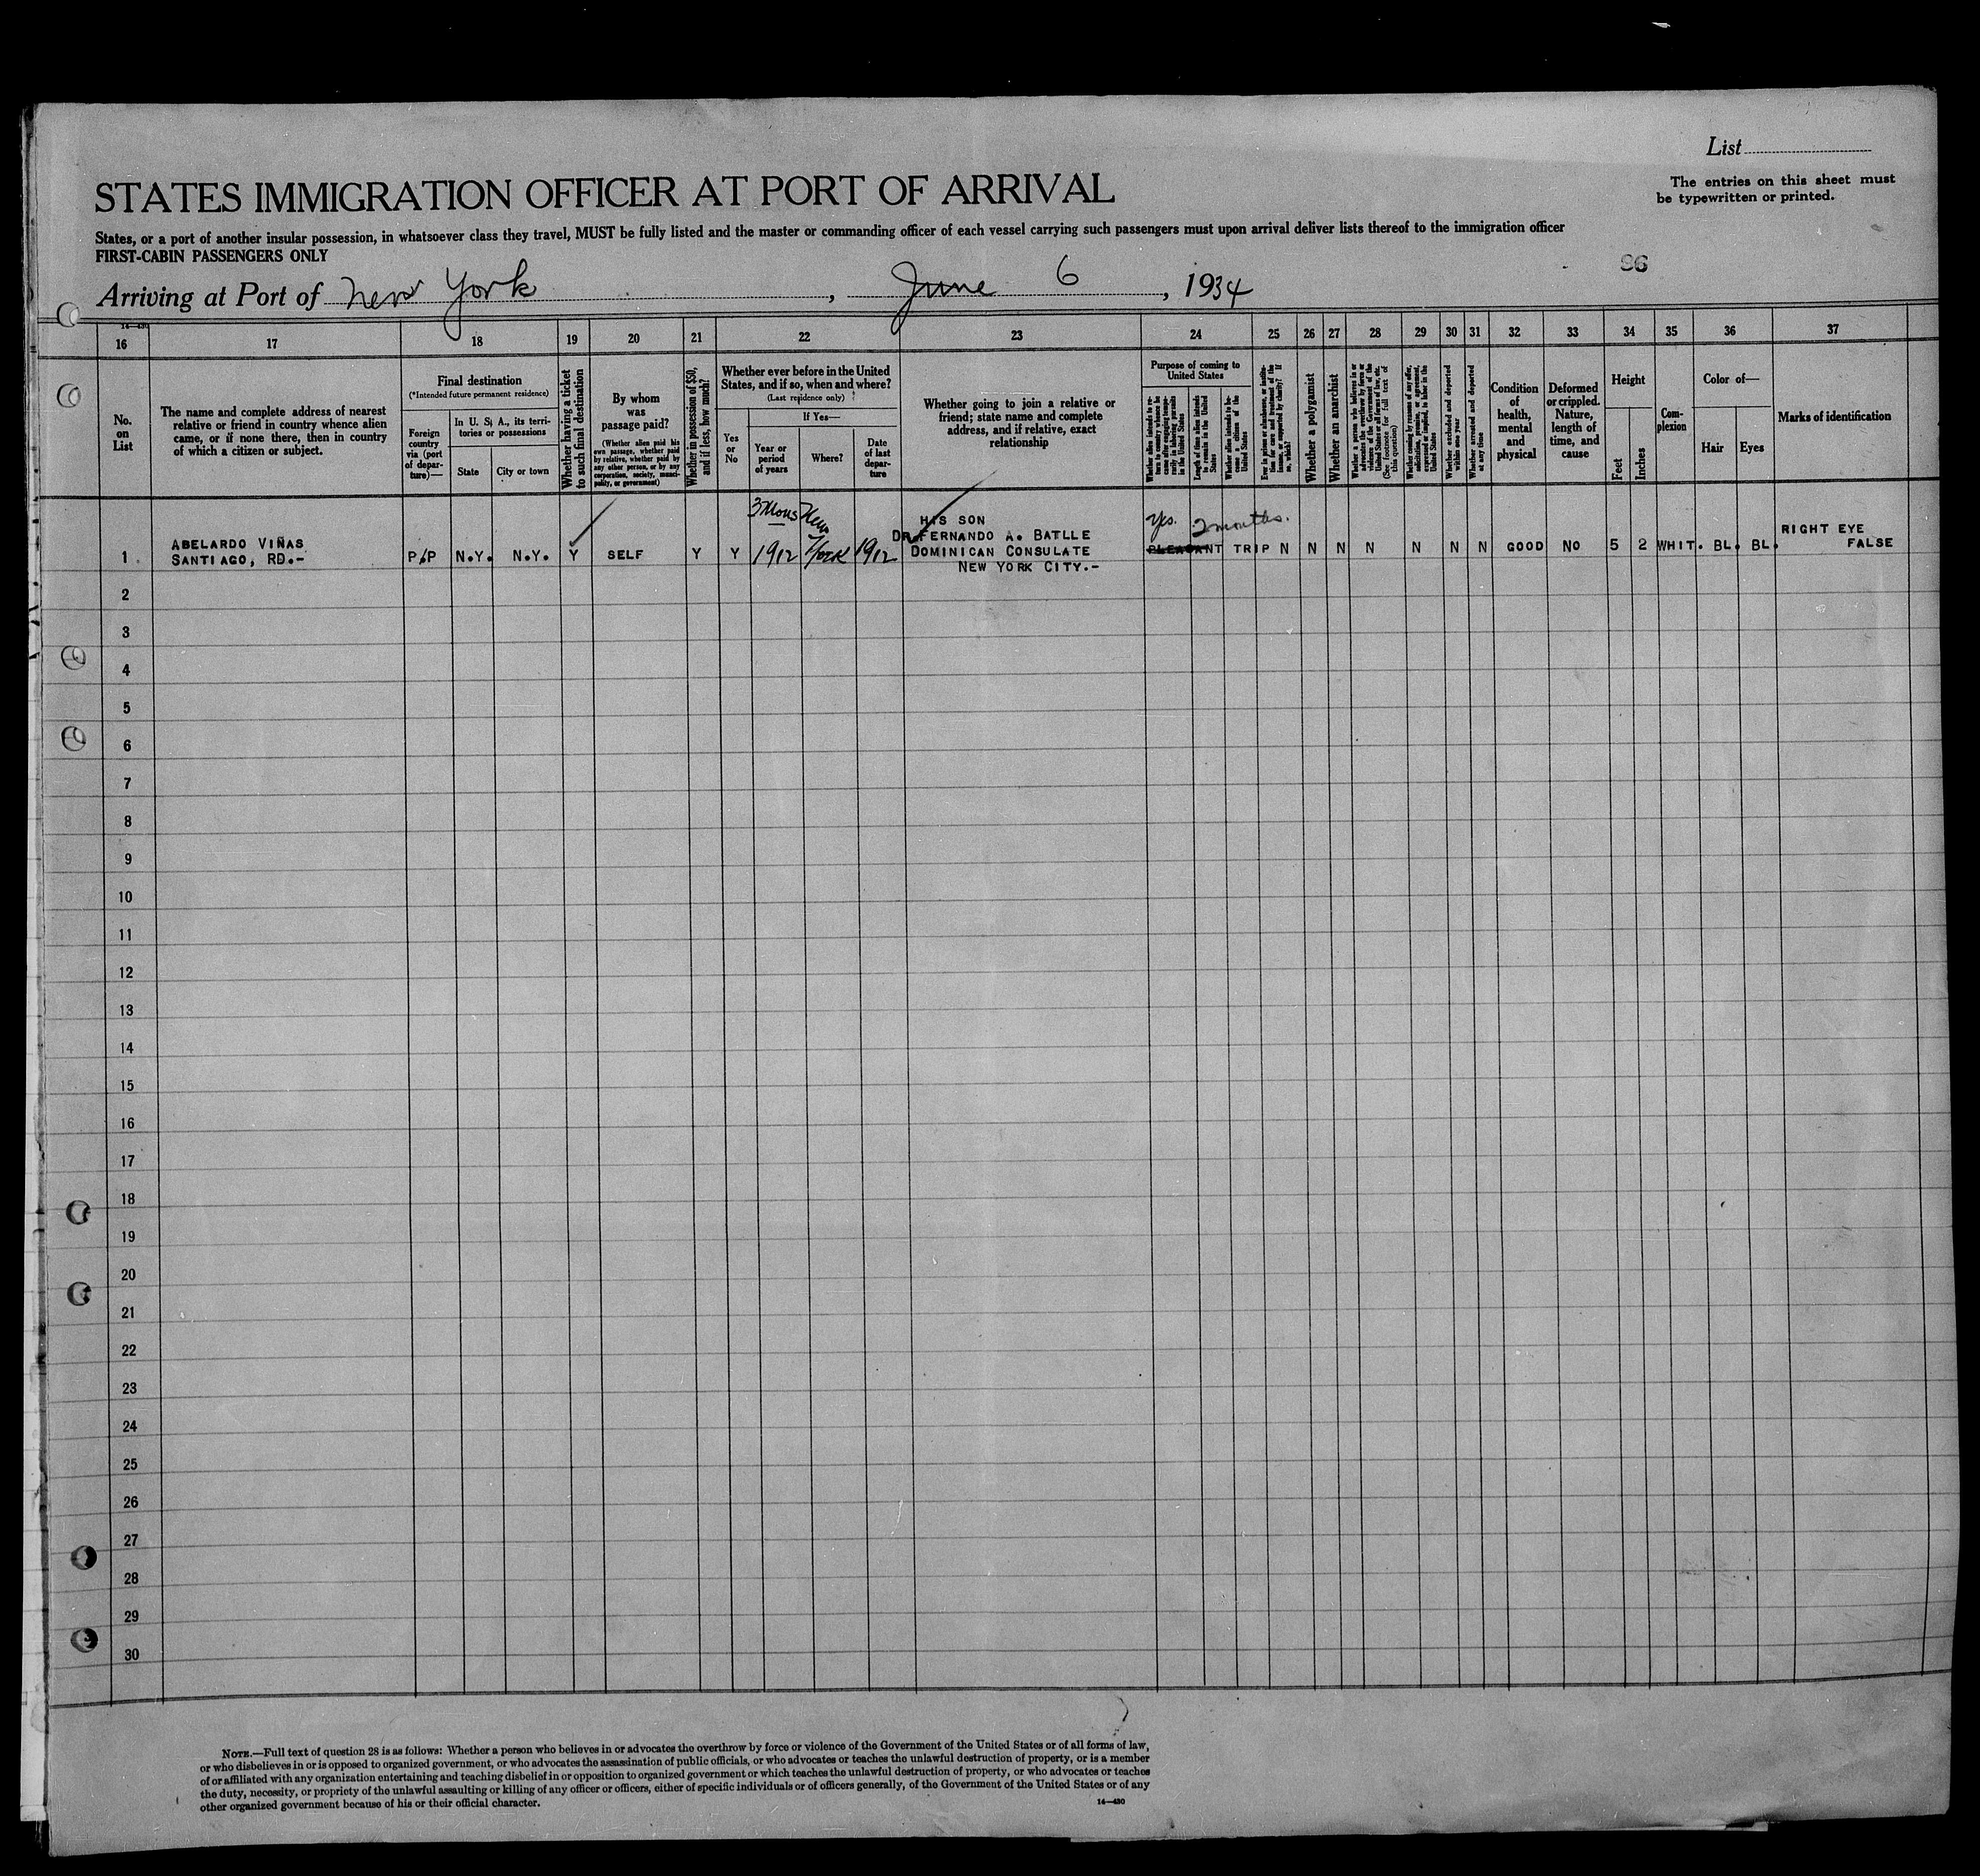 List
The entries on this sheet must
be typewritten or printed.
STATES IMMIGRATION OFFICER AT PORT OF ARRIVAL
States, or a port of another insular possession, in whatsoever class they travel, MUST be fully listed and the master or commanding officer of each vessel carrying such passengers must upon arrival deliver lists thereof to the immigration officer
FIRST-CABIN PASSENGERS ONLY
96
Arriving at Port of New York, June 6, 1934
16 17 18 19 20 21 22 23 24 25 26 27 28 29 30 31 32 33 34 35 36 37
No.
on
List
The name and complete address of nearest
relative or friend in country whence alien
came, or if none there, then in country
of which a citizen or subject.
Final destination
(*Intended future permanent residence)
Foreign
country
via (port
of depar-
ture)—
In U. S. A., its terri-
tories or possessions
State
City or town
Whether having a ticket
to such final destination
By whom
was
passage paid?
(Whether alien paid his
own passage, whether paid
by relative, whether paid by
any other person, or by any
corporation, society, munici-
pality, or government)
Whether in possession of $50,
and if less, how much?
Whether ever before in the United
States, and if so, when and where?
(Last residence only)
Yes
or
No
If Yes—
Year or
period
of years
Where?
Date
of last
depar-
ture
Whether going to join a relative or
friend; state name and complete
address, and if relative, exact
relationship
Purpose of coming to
United States
Whether alien intends to re-
turn to country whence he
came after engaging tempo-
rarily in laboring pursuits
in the United States
Length of time alien intends
to remain in the United
States
Whether alien intends to be-
come a citizen of the
United States
Ever in prison or almshouse, or institu-
tion for care and treatment of the
insane, or supported by charity? If
so, which?
Whether a polygamist
Whether an anarchist
Whether a person who believes in or
advocates the overthrow by force or
violence of the Government of the
United States or all forms of law, etc.
(See footnote for full text of
this question)
Whether coming by reasons of any offer,
solicitation, promise, or agreement,
expressed or implied, to labor in the
United States
Whether excluded and deported
within one year
Whether arrested and deported
at any time
Condition
of
health,
mental
and
physical
Deformed
or crippled.
Nature,
length of
time, and
cause
Height
Feet
Inches
Com-
plexion
Color of—
Hair
Eyes
Marks of identification
3 Mons New
HIS SON
Yes. 2 months.
RIGHT EYE
ABELARDO VIÑAS
DR. FERNANDO A. BATLLE
FALSE
1 SANTIAGO, RD.- P/P N.Y. N.Y. Y SELF Y Y 1912 York 1912 DOMINICAN CONSULATE PLEASANT TRIP N N N N N N N GOOD NO 5 2 WHIT. BL. BL.
NEW YORK CITY.-
2
3
4
5
6
7
8
9
10
11
12
13
14
15
16
17
18
19
20
21
22
23
24
25
26
27
28
29
30
NOTE.—Full text of question 28 is as follows: Whether a person who believes in or advocates the overthrow by force or violence of the Government of the United States or of all forms of law,
or who disbelieves in or is opposed to organized government, or who advocates the assassination of public officials, or who advocates or teaches the unlawful destruction of property, or is a member
of or affiliated with any organization entertaining and teaching disbelief in or opposition to organized government or which teaches the unlawful destruction of property, or who advocates or teaches
the duty, necessity, or propriety of the unlawful assaulting or killing of any officer or officers, either of specific individuals or of officers generally, of the Government of the United States or of any
other organized government because of his or their official character.
14—430